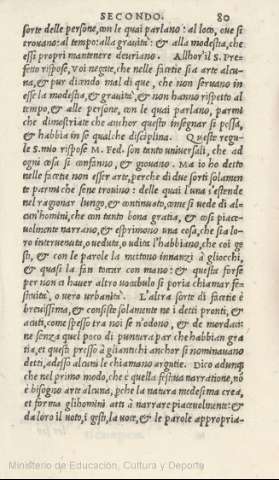 SECONDO. 80
sorte delle persone, con le quali parlano: al loco, oue si
trouano: al tempo: alla grauità: & alla modestia, che
essi propri mantenere deuriano. Allhor il S. Pre-
fetto rispose, voi negate, che nelle facetie sia arte alcu-
na, & pur dicendo mal di que, che non seruano in
esse la modestia, & grauità, & non hanno rispetto al
tempo, & alle persone, con le quali parlano, parmi
che dimostriate che anchor questo insegnar si possa,
& habbia in se qualche disciplina. Queste regu-
le S. mio rispose M. Fed. son tanto uniuersali, che ad
ogni cosa si confanno, & giouano. Ma io ho detto
nelle facetie non esser arte, perche di due sorti solamen-
te parmi che sene trouino: delle quai l'una s'estende
nel ragionar lungo, & continuato, come si uede di al-
cun'homini, che con tanto bona gratia, & cosi piace-
uolmente narrano, & esprimono una cosa, che sia lo-
ro interuenuta, o ueduta, o udita l'habbiano, che coi ge
sti, & con le parole la mettono innanzi à gliocchi,
& quasi la fan toccar con mano: & questa forse
per non ci hauer altro uocabulo si poria chiamar fe-
stiuità, o uero urbanità. L'altra sorte di facetie è
breuissima, & consiste solamente ne i detti pronti, &
acuti, come spesso tra noi se n'odono, & de mordaci:
ne senza quel poco di puntura par che habbian gra
tia, et questi presso à gliantichi anchor si nominauano
detti, adesso alcuni le chiamano argutie. Dico adunq;
che nel primo modo, che è quella festiua narratione, nō
è bisogno arte alcuna, pche la natura medesima crea,
et forma glihomini atti à narrare piaceuolmente: &
da loro il uolto, i gesti, la uoce, & le parole appropria-
Ministerio de Educación, Cultura y Deporte